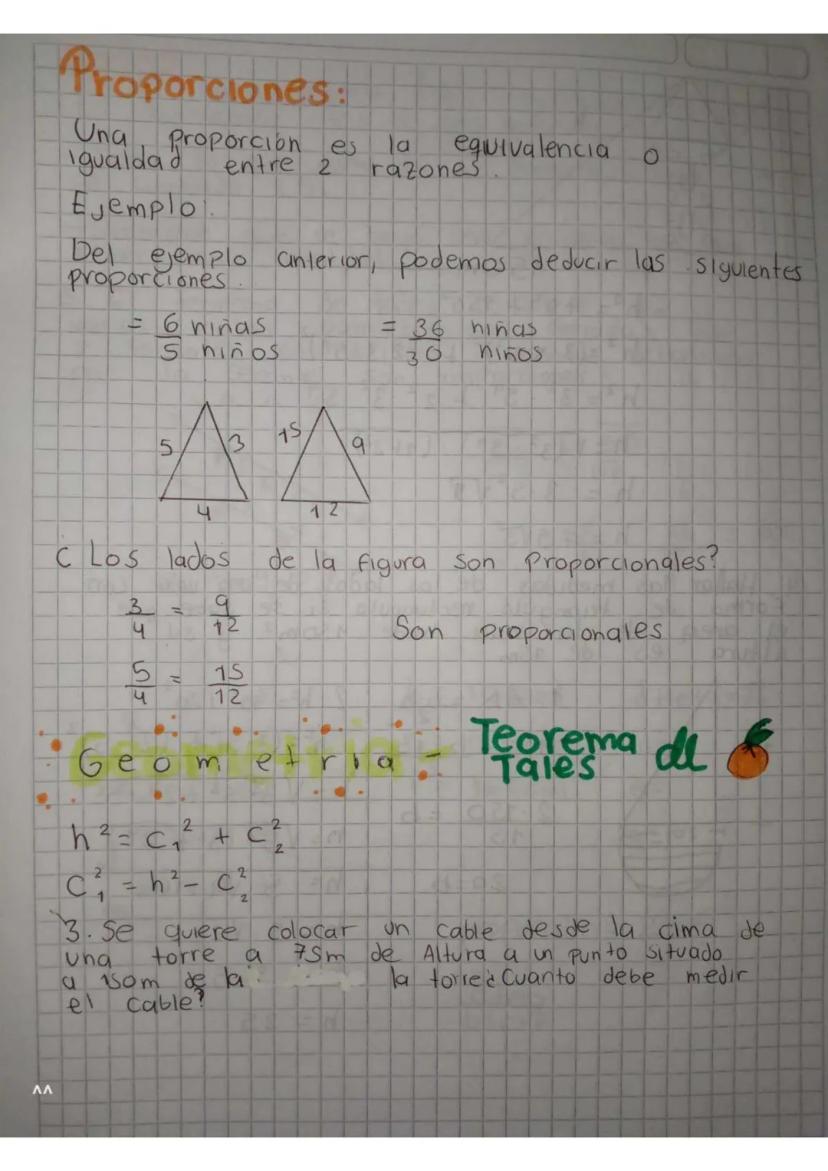 Proporciones:
Una proporción es la equivalencia o
igualdad entre 2 razones.
Ejemplo.
Del ejemplo anterior, podemos deducir las siguientes
proporciones.
= 6 niñas = 36 niñas
5 niños 30 niños
5 3 15 9
4 12
¿ Los lados de la figura son proporcionales?
3/4 = 9/12 Son proporcionales
5/4 = 15/12
Geometria - Teorema de
Tales
h² = c₁² + c₂²
c₁² = h² - c₂²
3. Se quiere colocar un cable desde la cima de
una torre a 75m de Altura a un punto situado
a 150m de la la torre ¿Cuanto debe medir
el cable?
^^